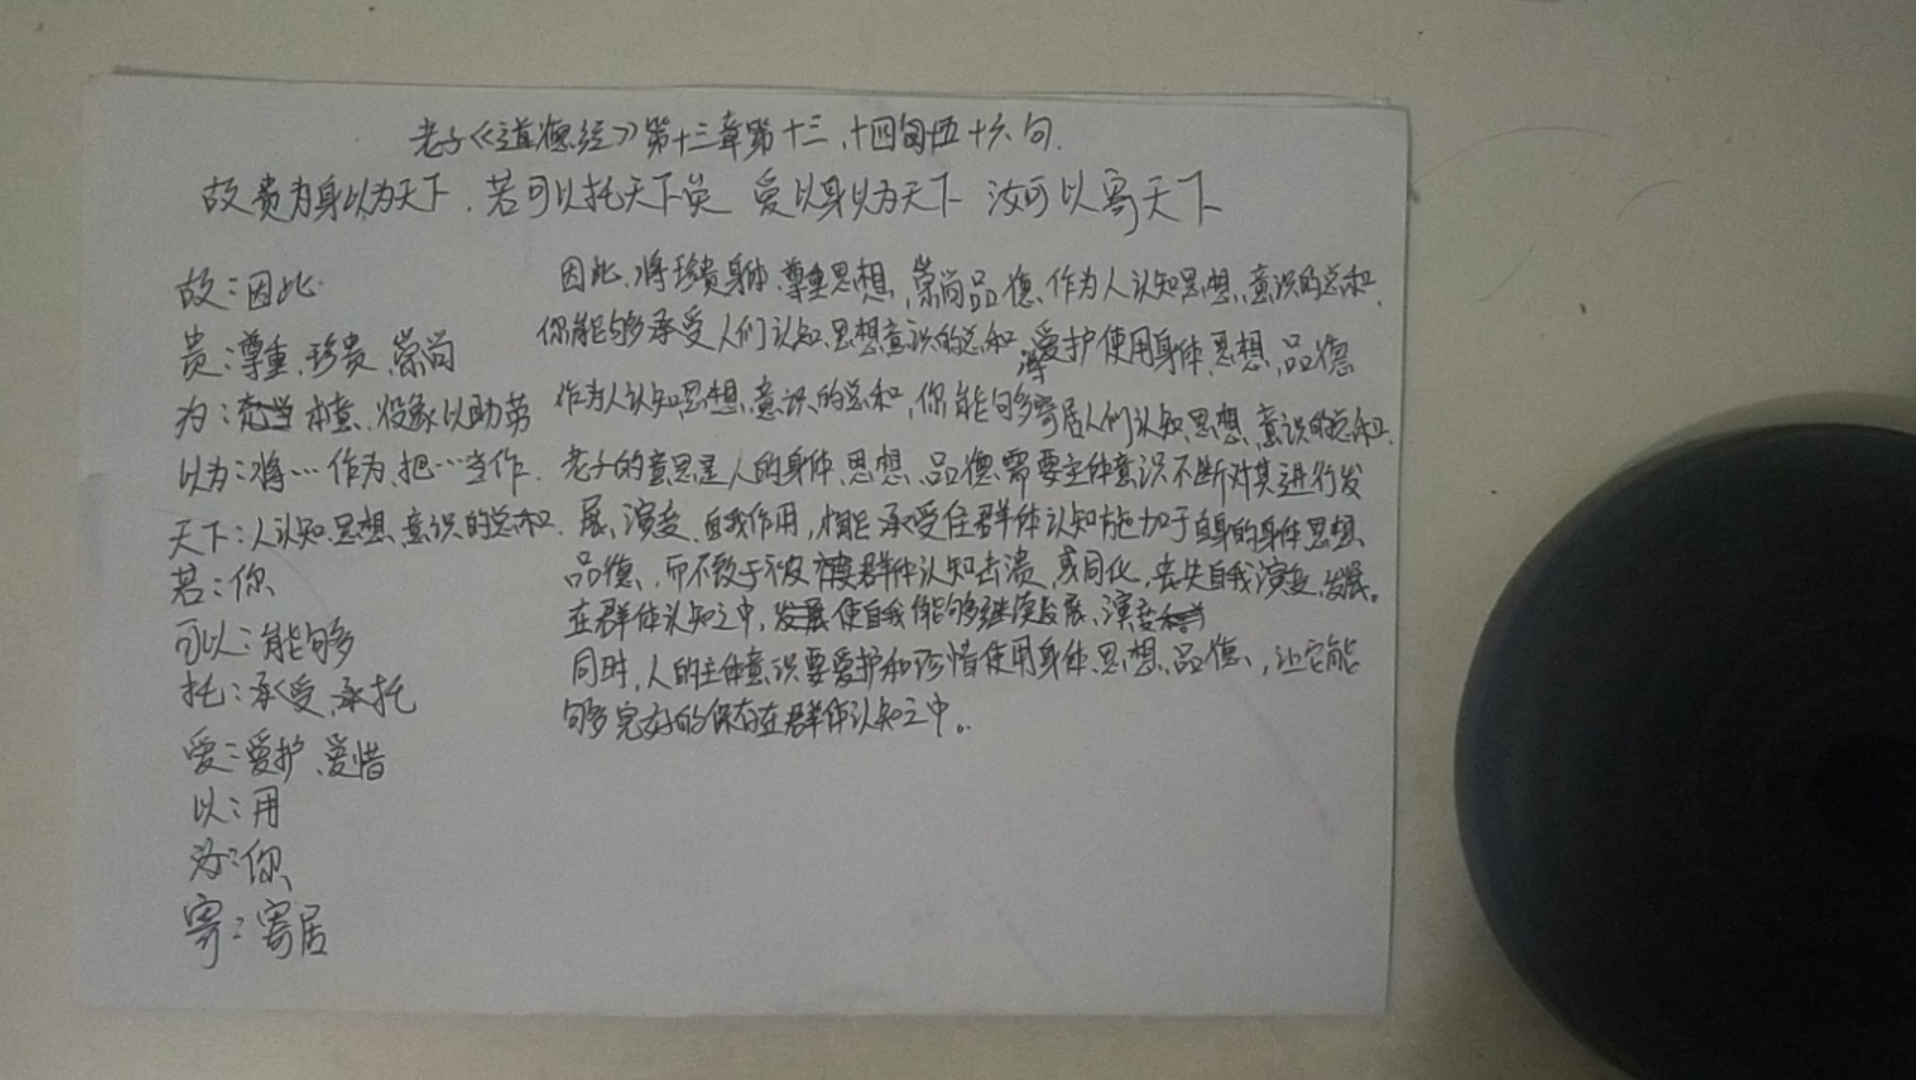 老子《道德经》第十三章第十三、十四句十五十六句.
故贵为身以为天下.若可以托天下矣 爱以身以为天下 汝可以寄天下
故:因此.
贵:尊重、珍贵、崇尚
为:本意、役象以助劳
以为:将…作为、把…当作.
天下:人认知、思想、意识的总和.
若:你
可以:能够
托:承受、承托
爱:爱护、爱惜
以:用
汝:你
寄:寄居
因此、将珍贵身体、尊重思想、崇尚品德、作为人认知思想、意识的总和、
你能够承受人们认知、思想意识的总和.将爱护使用身体、思想、品德
作为人认知思想、意识的总和,你能够寄居人们认知、思想、意识的总和.
老子的意思是人的身体、思想、品德需要主体意识不断对其进行发
展、演变、自我作用,才能承受住群体认知施加于自身的身体思想、
品德、而不致于被群体认知击溃、或同化,丧失自我演变、发展。
在群体认知之中,使自我能够继续发展、演变
同时,人的主体意识要爱护和珍惜使用身体、思想、品德、,让它能
够完好的保存在群体认知之中。